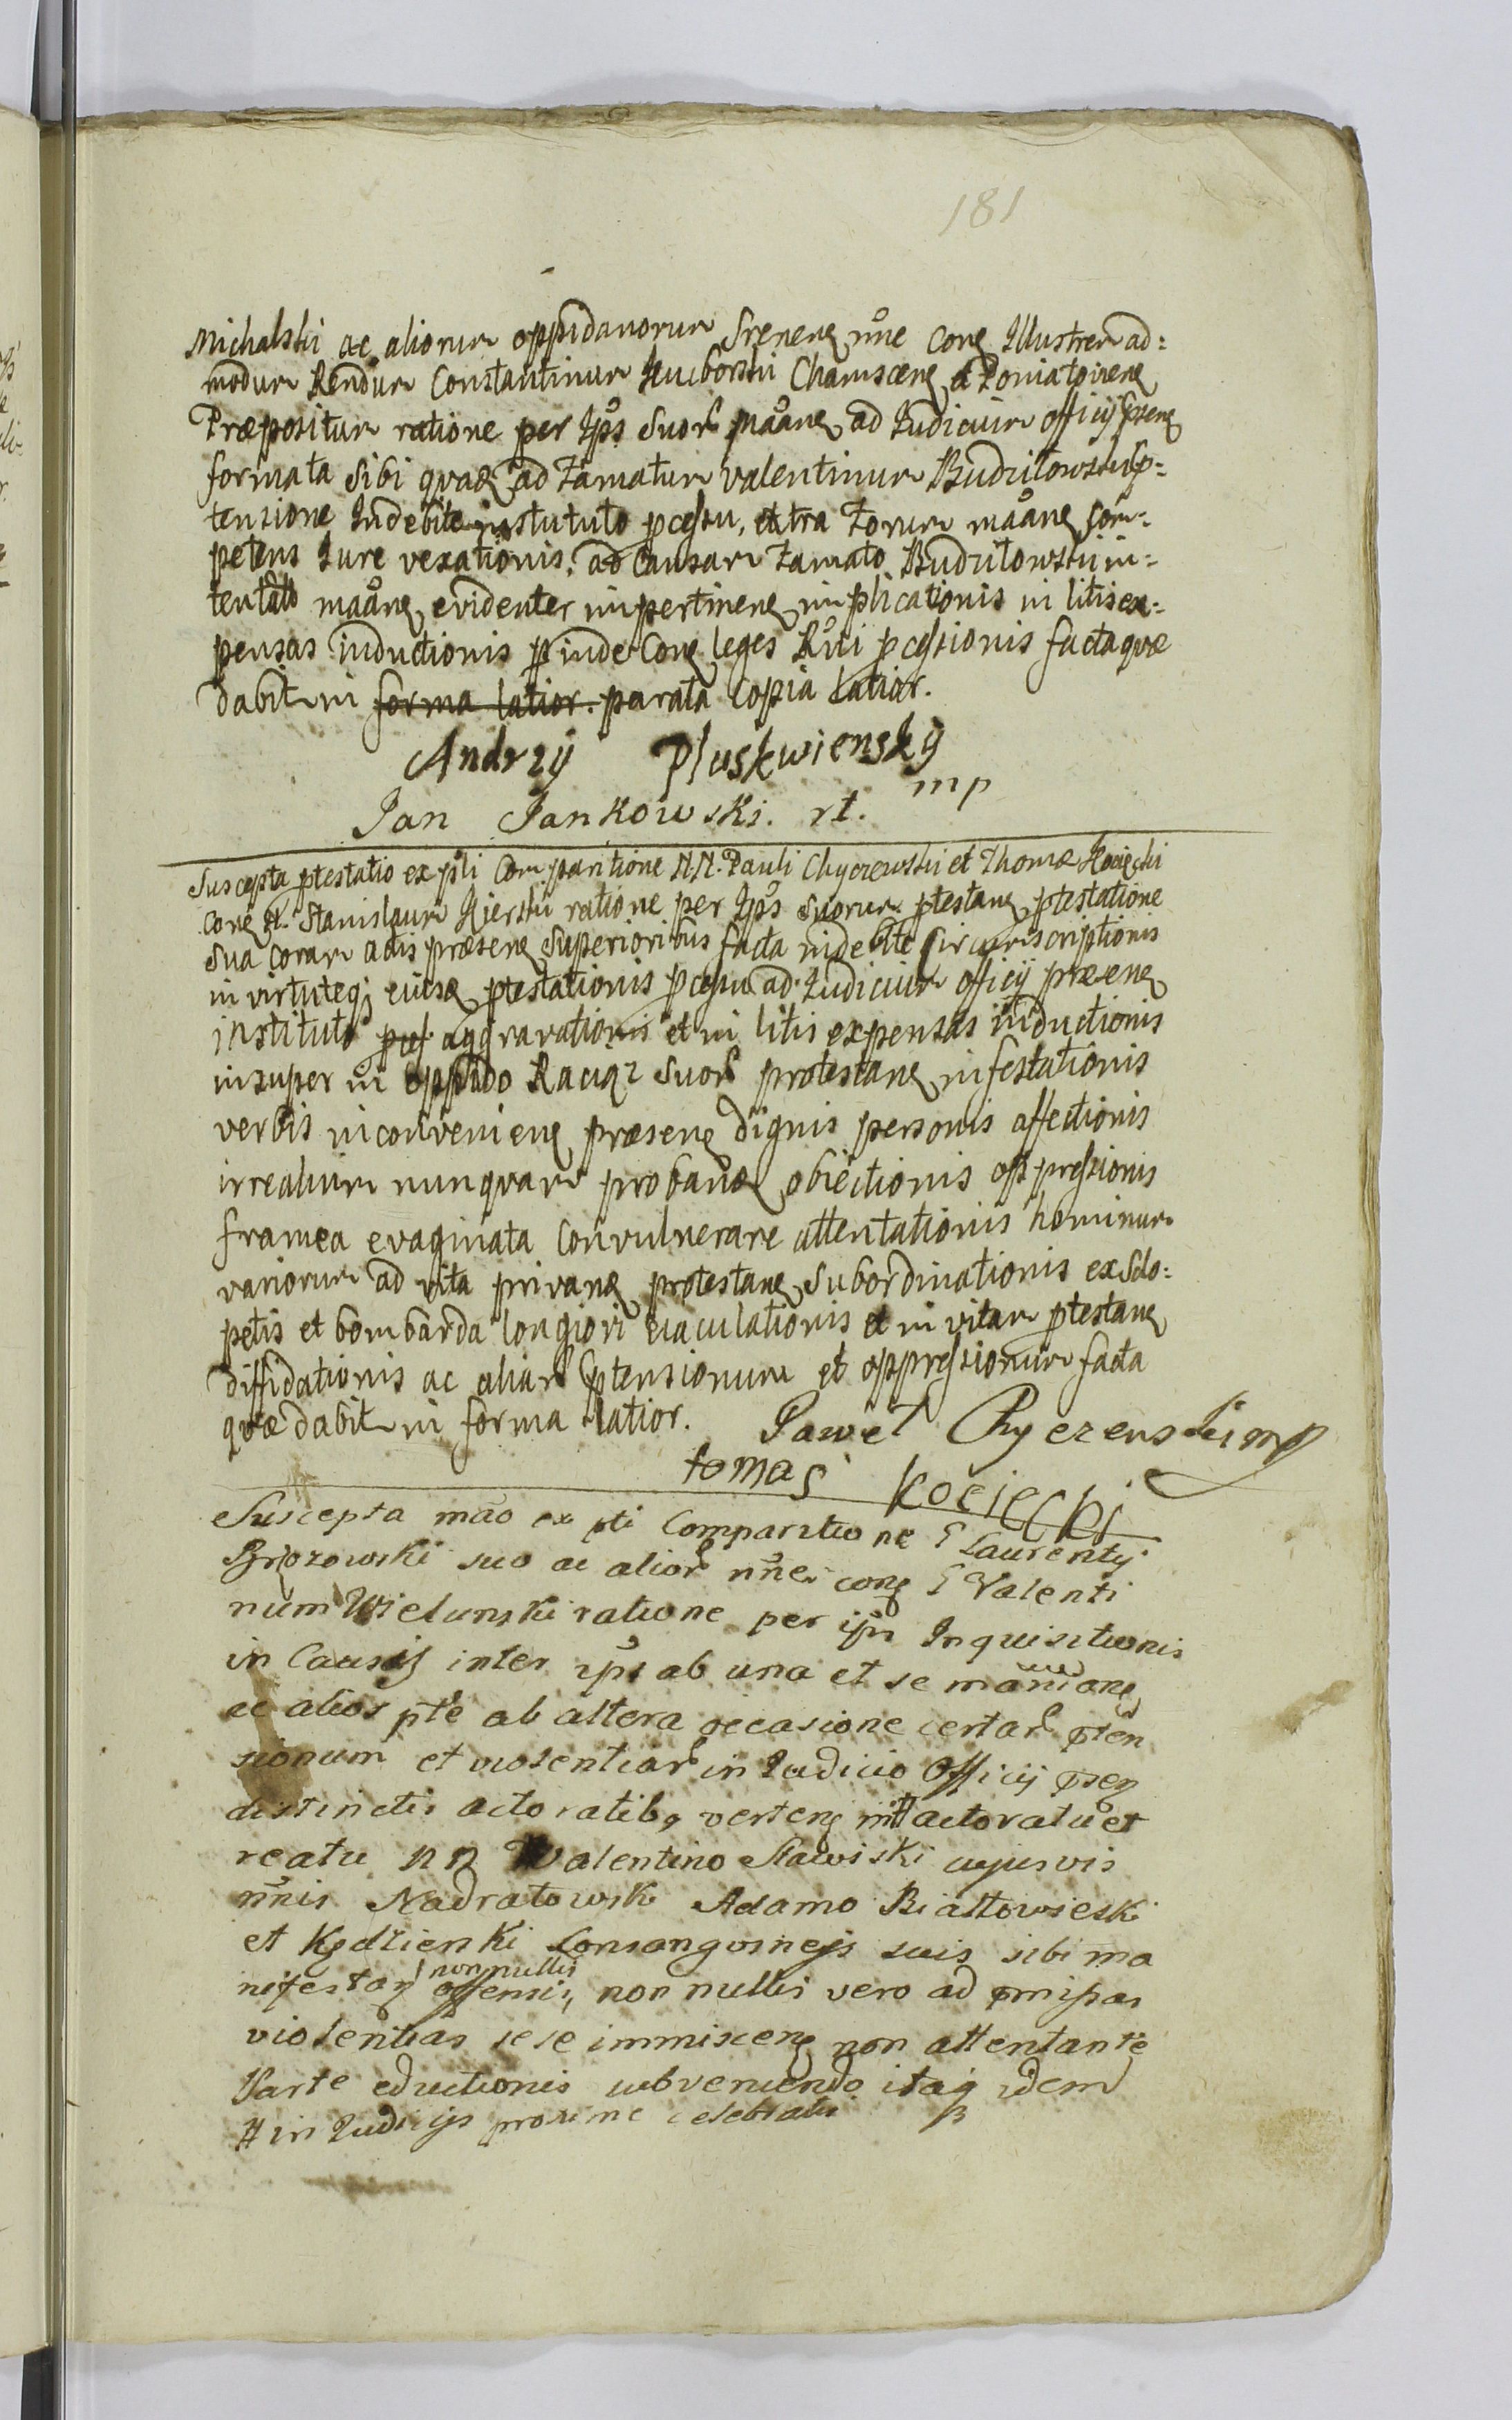 181
Michalski ac aliorum oppidanorum Srenen nne con Illustrem ad=
modum Rendum Constantinum Chamscen & Poniatovien
Præpositum ratione per Ips suor maan ad Iudicium officij psen
formata sibi quæ ad famatum Valentinum Budzilowski p=
tensione Indebite instututo pcessu, extra forum maan com=
petens Iure vexationis, ad Causam famato Budzilowski in=
tentato maan evidenter impertinen implicationis in litis ex=
pensas inductionis pinde Con leges Rni pcessionis facta quæ
dabit in forma latior. parata Copia latior.
Andrzy Pluskwiensky
mp
Jan Jankowski. rt.
Suscepta ptestatio ex psli Comparitione N.N. Pauli Chyczewski et Thomæ Kociecki
Con N. Stanislaum Kierski ratione per Ips suorum ptestan ptestatione
sua coram actis præsen superioribus facta indebite circumscriptionis
in virtuteq eiusd ptestationis pcessu ad Iudicium officij præsen
instituto aggravationis et in litis expensas inductionis
insuper in oppido Raciąz suor protestan infestationis
verbis inconvenien præsen dignis personis affectionis
irrealium nunquam proban obiectionis oppressionis
framea evaginata convulnerare attentationis hominum
variorum ad vita privan protestan subordinationis ex sclo=
petis et bombarda longiori eiaculationis et in vitam ptestan
diffidationis ac aliar ptensionum et oppressionum facta
quæ dabit in forma latior. Pawel Chyczewski mp
tomas kocieckj
Suscepta mão ex pti Comparitione G Laurentij
Brzozowski suo ac alior nne con G Valenti
num Wielunski ratione per ips Inquisitionis
in Causis inter ips ab una et se manian
ac alios pte ab altera occasione certar pten
sionum et violentiar in Iudicio Officij psen
distinctis actoratib verten in # actoratu et
reatu nn Valentino Stawiski cujusvis
nnis Nadratowski Adamo Bialtowieski
et Kędzienki Consangvineis suis sibi ma
nifestan nonnullis offensis, non nullis vero ad pmissas
violentias sese immiscen non attentante
Parte eductionis subveniendo itaq idem
# in Iudicijs proxime celebratis